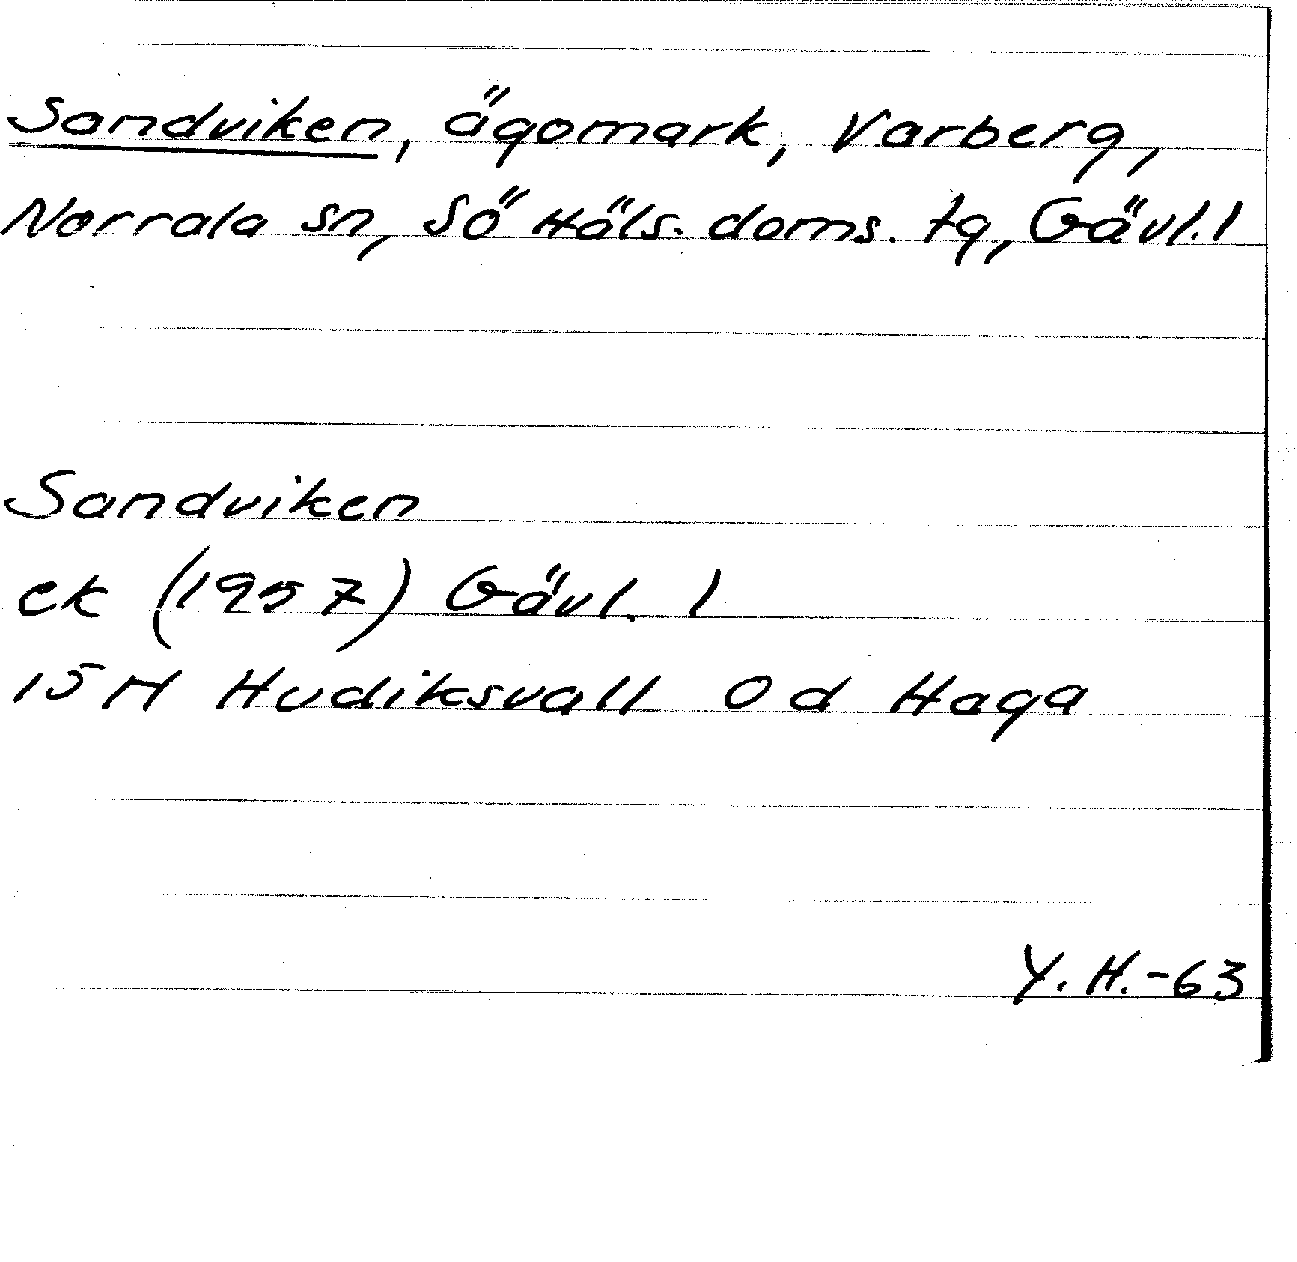 Sandviken, ägomark, Varberg,
Norrala sn, Sö Häls. doms. tg, Gävl. l
Sandviken
ek (1957) Gävl. l
15 H Hudiksvall 0 d Haga
Y. H. -63